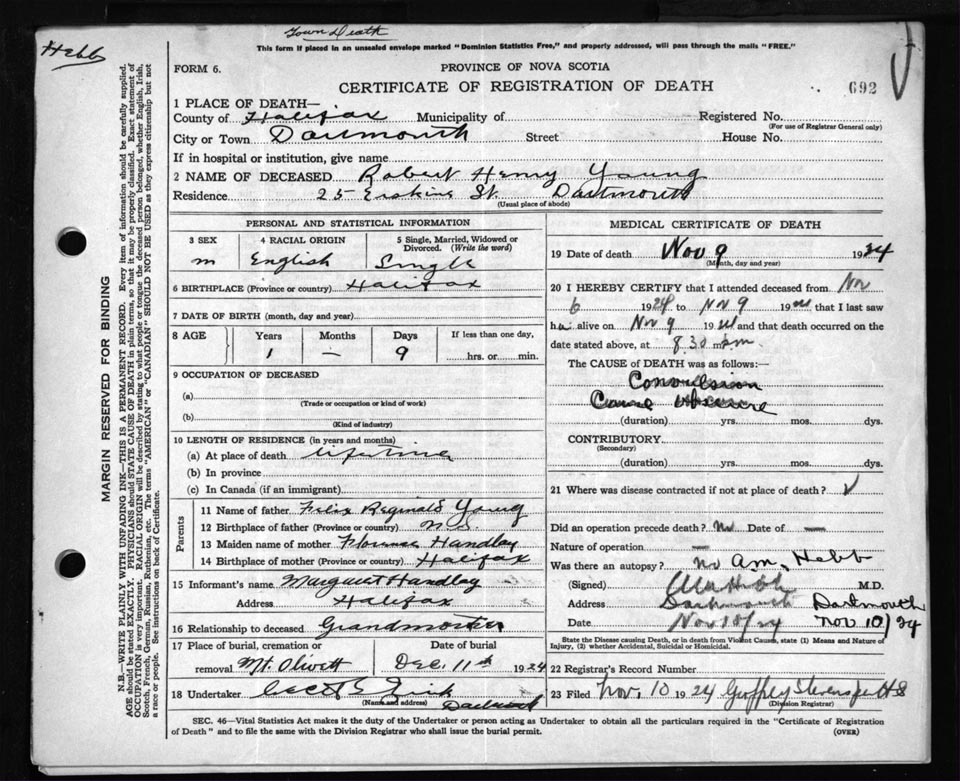 Town Death
Hebb
This form if placed in an unsealed envelope marked "Dominion Statistics Free," and properly addressed, will pass through the mails "FREE."
FORM 6.
PROVINCE OF NOVA SCOTIA
CERTIFICATE OF REGISTRATION OF DEATH
692
1 PLACE OF DEATH—
County of Halifax Municipality of Registered No.
(For use of Registrar General only)
City or Town Dartmouth Street House No.
If in hospital or institution, give name
2 NAME OF DECEASED Robert Henry Young
Residence 25 Erskine St. Dartmouth
(Usual place of abode)
MARGIN RESERVED FOR BINDING
N.B.—WRITE PLAINLY WITH UNFADING INK—THIS IS A PERMANENT RECORD. Every item of information should be carefully supplied.
AGE should be stated EXACTLY. PHYSICIANS should STATE CAUSE OF DEATH in plain terms, so that it may be properly classified. Exact statement of
OCCUPATION is very important. RACIAL ORIGIN will be described by stating to what people or tongue the deceased person belonged, whether English, Irish,
Scotch, French, German, Russian, Ruthenian, etc. The terms "AMERICAN" or "CANADIAN" SHOULD NOT BE USED as they express citizenship but not
a race or people. See instructions on back of Certificate.
PERSONAL AND STATISTICAL INFORMATION
3 SEX 4 RACIAL ORIGIN 5 Single, Married, Widowed or
Divorced. (Write the word)
m English Single
6 BIRTHPLACE (Province or country) Halifax
7 DATE OF BIRTH (month, day and year)
8 AGE Years Months Days If less than one day,
1 — 9 hrs. or min.
9 OCCUPATION OF DECEASED
(a)
(Trade or occupation or kind of work)
(b)
(Kind of industry)
10 LENGTH OF RESIDENCE (in years and months)
(a) At place of death lifetime
(b) In province
(c) In Canada (if an immigrant)
Parents
11 Name of father Felix Reginald Young
12 Birthplace of father (Province or country) N.S.
13 Maiden name of mother Florence Handley
14 Birthplace of mother (Province or country) Halifax
15 Informant's name Margaret Handley
Address Halifax
16 Relationship to deceased Grandmother
17 Place of burial, cremation or Date of burial
removal Mt. Olivett Dec. 11th 1924
18 Undertaker
(Name and address) Dartmouth
MEDICAL CERTIFICATE OF DEATH
19 Date of death Nov 9 1924
(Month, day and year)
20 I HEREBY CERTIFY that I attended deceased from Nov
6 1924 to Nov 9 19 that I last saw
h alive on Nov 9 19 and that death occurred on the
date stated above, at 8.30 m.
The CAUSE OF DEATH was as follows:
Convulsion
Cause obscure
(duration) yrs. mos. dys.
CONTRIBUTORY.
(Secondary)
(duration) yrs. mos. dys.
21 Where was disease contracted if not at place of death?
Did an operation precede death? No Date of —
Nature of operation —
Was there an autopsy? no A.M. Hebb
(Signed) M.D.
Address Dartmouth Dartmouth
Date Nov 10/24 Nov 10/24
State the Disease causing Death, or in death from Violent Causes, state (1) Means and Nature of
Injury, (2) whether Accidental, Suicidal or Homicidal.
22 Registrar's Record Number
23 Filed Nov. 10 1924 Geoffrey Stevens
(Division Registrar)
SEC. 46—Vital Statistics Act makes it the duty of the Undertaker or person acting as Undertaker to obtain all the particulars required in the "Certificate of Registration
of Death" and to file the same with the Division Registrar who shall issue the burial permit. (OVER)